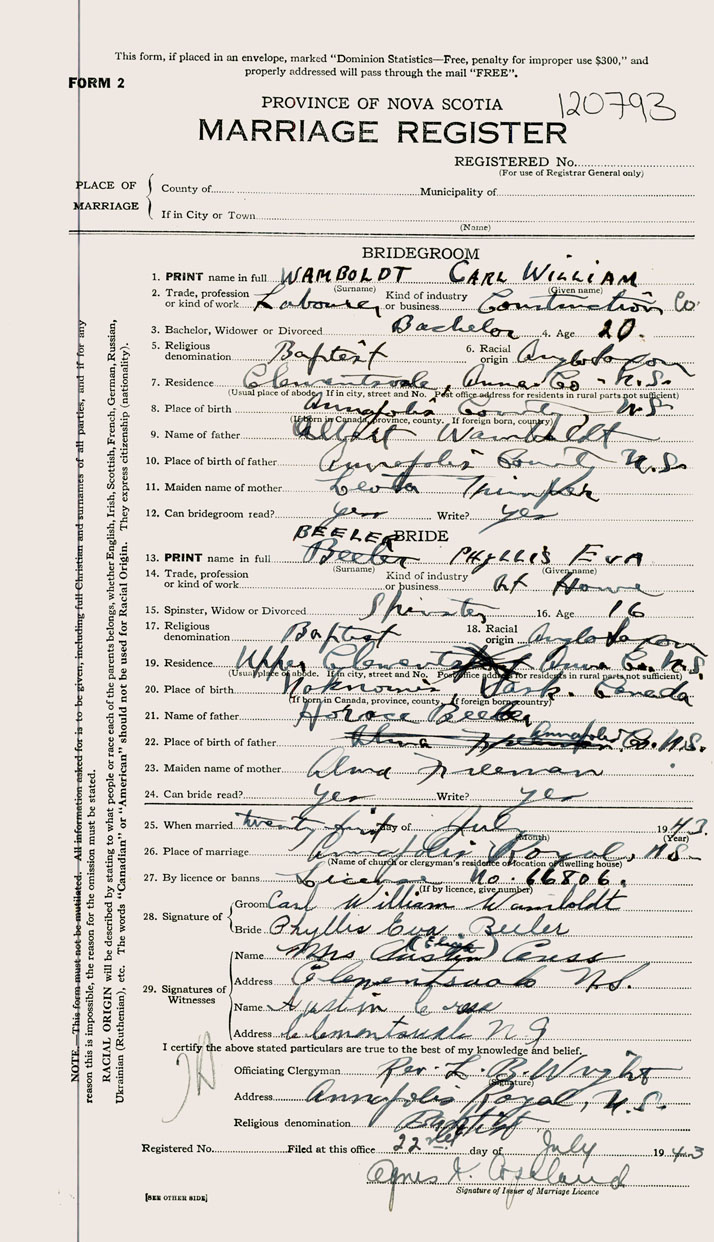 This form, if placed in an envelope, marked “Dominion Statistics—Free, penalty for improper use $300,” and
properly addressed will pass through the mail “FREE”.
FORM 2
PROVINCE OF NOVA SCOTIA 120793
MARRIAGE REGISTER
REGISTERED No.
(For use of Registrar General only)
PLACE OF MARRIAGE
County of Municipality of
If in City or Town
(Name)
BRIDEGROOM
1. PRINT name in full WAMBOLDT CARL WILLIAM
(Surname) (Given name)
2. Trade, profession or kind of work Labourer Kind of industry or business Construction Co
3. Bachelor, Widower or Divorced Bachelor 4. Age 20.
5. Religious denomination Baptist 6. Racial origin Anglo Saxon
7. Residence Clementsvale, Anna Co - N.S.
(Usual place of abode. If in city, street and No. Post office address for residents in rural parts not sufficient)
8. Place of birth Annapolis County, N.S
(If born in Canada, province, county. If foreign born, country)
9. Name of father Albert Wamboldt
10. Place of birth of father Annapolis County N.S.
11. Maiden name of mother Leota Trimper
12. Can bridegroom read? yes Write? yes
BEELER BRIDE
13. PRINT name in full Beeler PHYLLIS EVA
(Surname) (Given name)
14. Trade, profession or kind of work Kind of industry or business At Home
15. Spinster, Widow or Divorced Spinster 16. Age 16
17. Religious denomination Baptist 18. Racial origin Anglo Saxon
19. Residence Upper Clements Anna Co. N.S.
(Usual place of abode. If in city, street and No. Post office address for residents in rural parts not sufficient)
20. Place of birth Noknomis, Sask. Canada
(If born in Canada, province, county. If foreign born, country)
21. Name of father Horace Beeler
22. Place of birth of father Alma Freeman Annapolis Co. N.S.
23. Maiden name of mother Alma Freeman
24. Can bride read? yes Write? yes
25. When married twenty first day of July 1943.
(Month) (Year)
26. Place of marriage Annapolis Royal, N.S.
(Name of church or clergyman's residence or location of dwelling house)
27. By licence or banns License No. 66806.
(If by licence, give number)
28. Signature of
Groom Carl William Wamboldt
Bride Phyllis Eva Beeler
29. Signatures of Witnesses
Name Mrs Austin
Address Clementsvale N.S.
Name Austin
Address Clementsvale N S
I certify the above stated particulars are true to the best of my knowledge and belief.
Officiating Clergyman Rev. L. B. Wright
(Signature)
Address Annapolis Royal, N.S.
Religious denomination Baptist
Registered No. Filed at this office 22nd day of July 1943
Agnes Copeland
Signature of Issuer of Marriage Licence
[SEE OTHER SIDE]
NOTE.—This form must not be mutilated. All information asked for is to be given, including full Christian and surnames of all parties, and if for any
reason this is impossible, the reason for the omission must be stated.
RACIAL ORIGIN will be described by stating to what people or race each of the parents belongs, whether English, Irish, Scottish, French, German, Russian,
Ukrainian (Ruthenian), etc. The words “Canadian” or “American” should not be used for Racial Origin. They express citizenship (nationality).